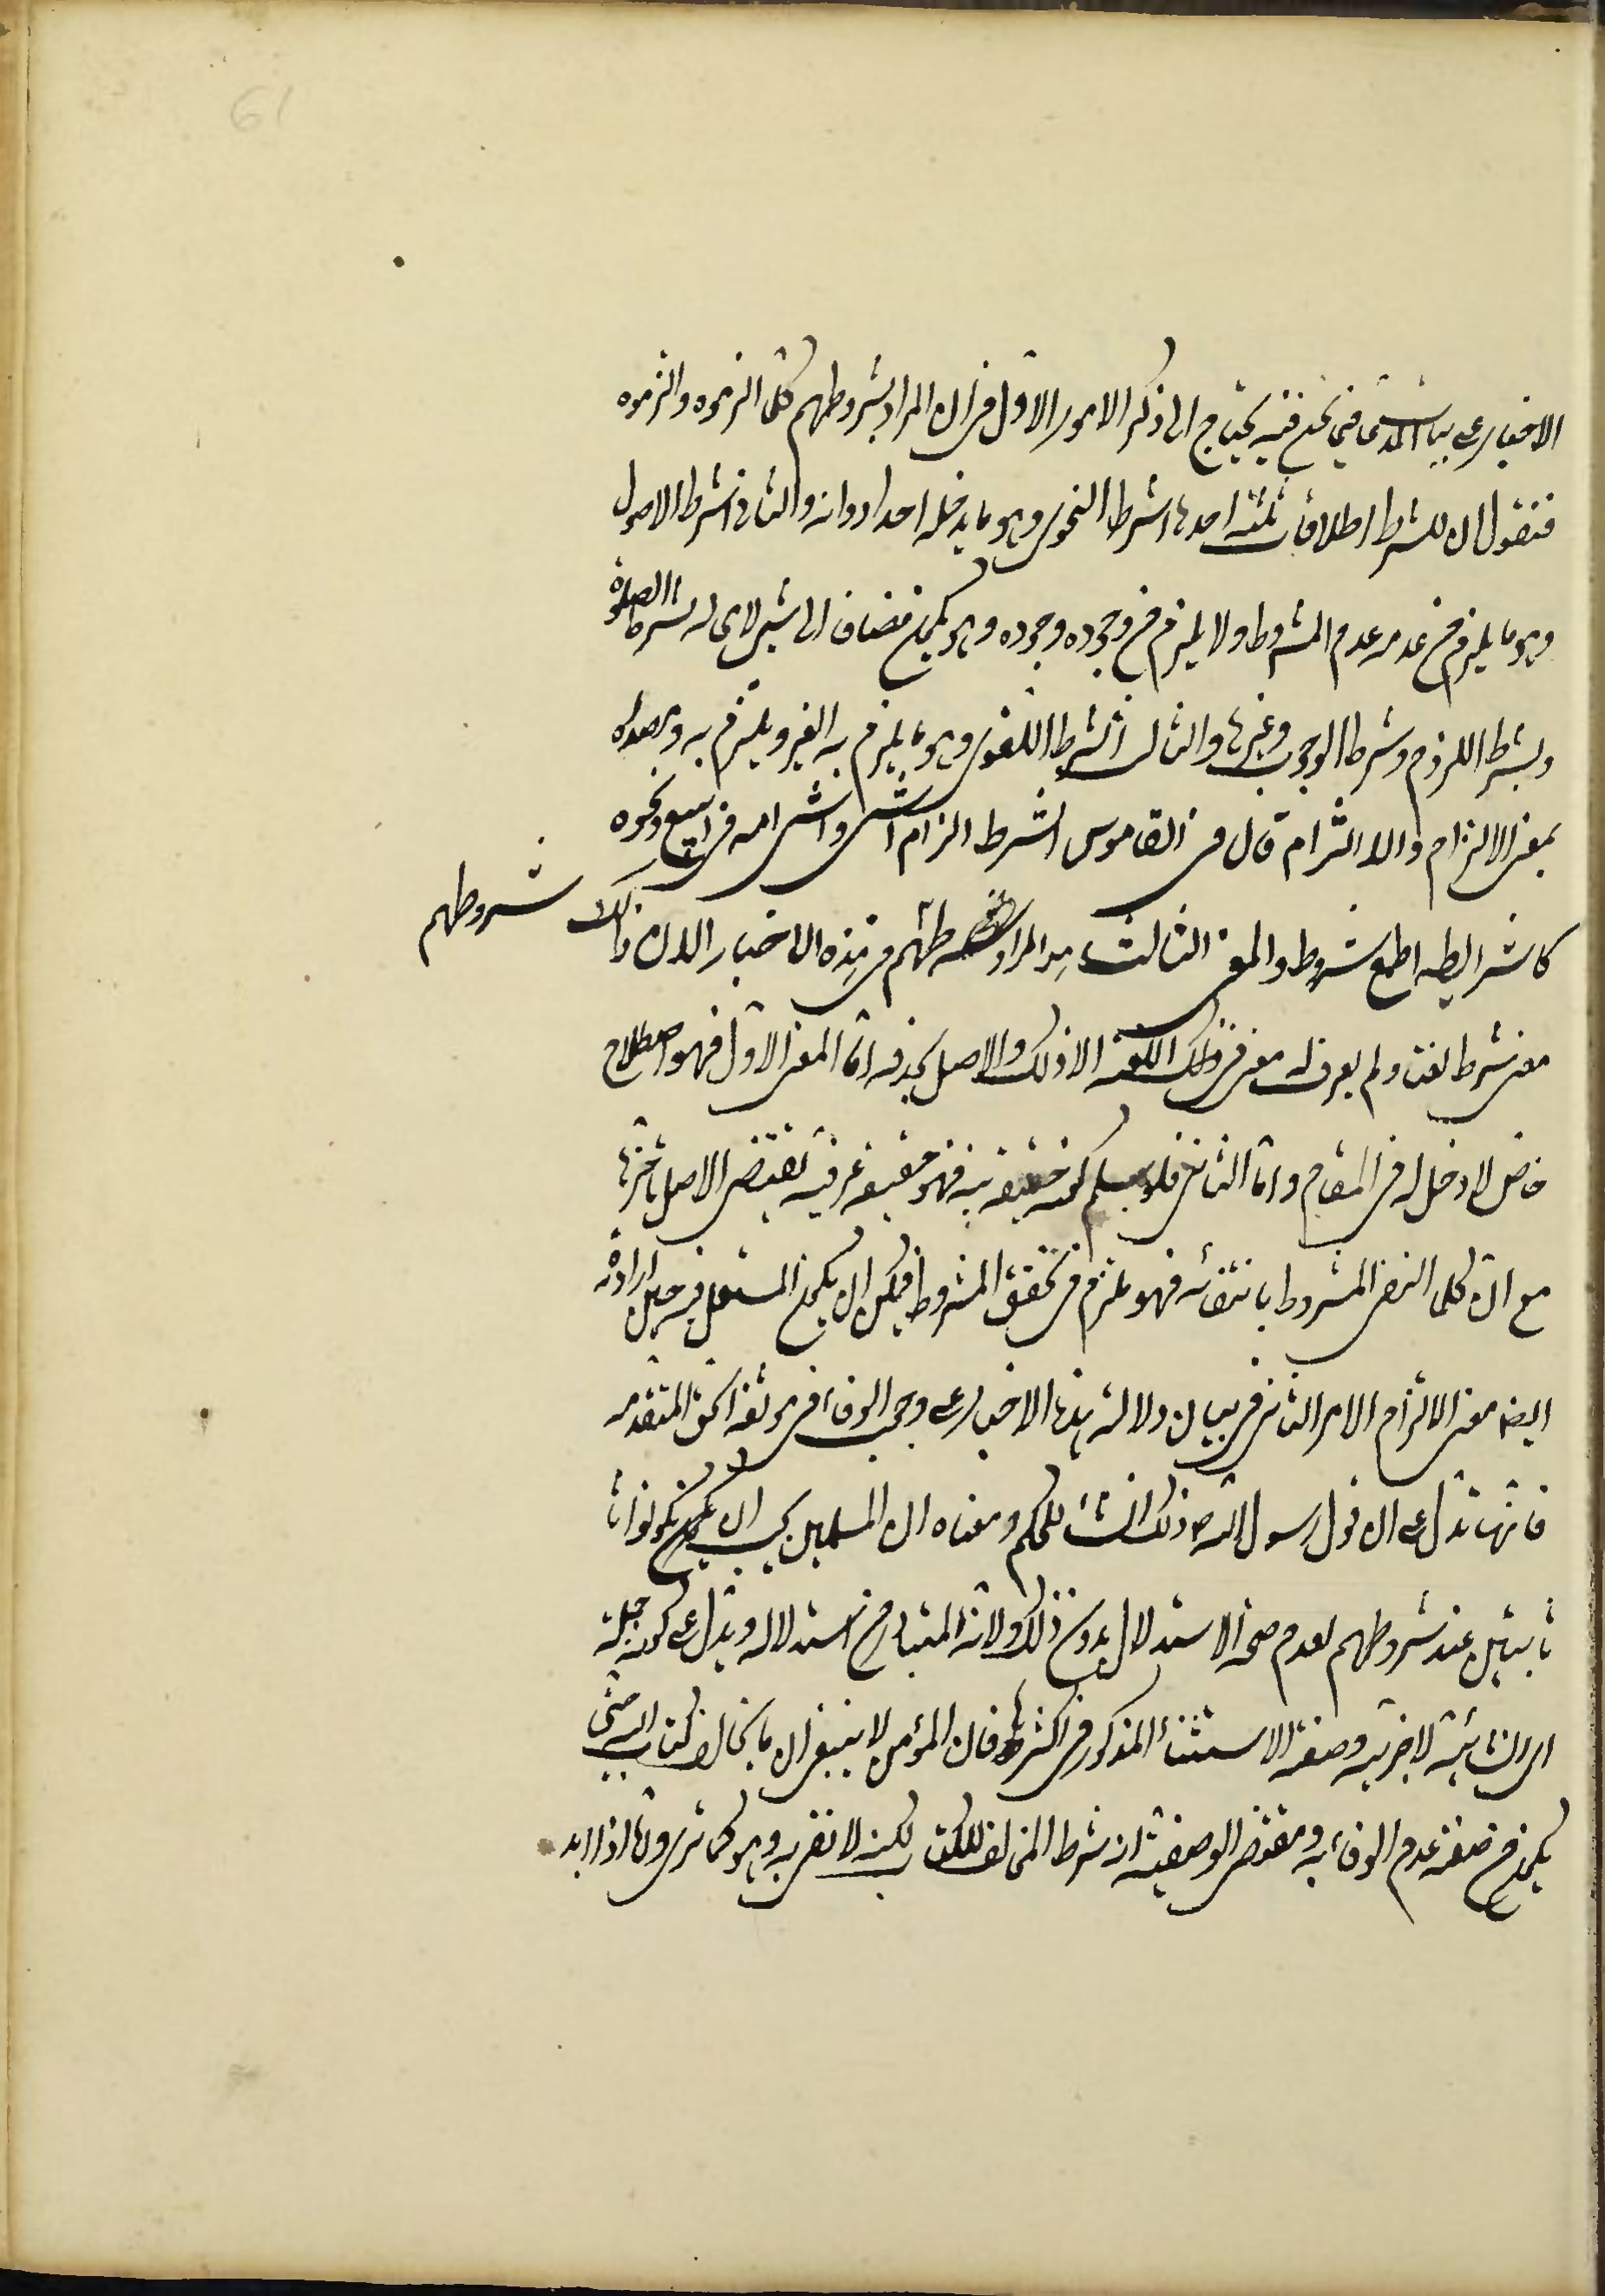 61
الاخبار على بيان المدعى فيما نحن فيه يحتاج الى ذكر الامور الاول فى ان المراد بشروطهم كلما الزموه والتزموه
فنقول ان للشرط اطلاقات ثلثة احدها الشرط النحوى وهو ما يدخله احد ادواته والثانى الشرط الاصولى
وهو ما يلزم من عدمه عدم المشروط ولا يلزم من وجوده وجوده وهو يكون مضافا الى شىء لا محاله كشرط الصلوة
وشرط اللزوم وشرط الوجوب وغيرها والثالث الشرط اللغوى وهو ما يلزم به الغير ويلتزم به
بمعنى الالزام والالتزام قال فى القاموس الشرط الزام الشىء والتزامه فى البيع ونحوه
كالشريطه الجمع شروط والمعنى الثالث هو المراد من شروطهم فى هذه الاخبار لان ذلك شروطهم
معنى شرط لغة ولم يعرف له معنى فى تلك اللغة الا ذلك والاصل عدمه اما المعنى الاول فهو اصطلاح
خاص لا دخل له فى المقام واما الثانى فلو سلم كونه حقيقة فيه فهو حقيقة عرفيه يقتضى الاصل تاخرها
مع ان كلما انتفى المشروط بانتفائه فهو ملتزم فى تحقق المشروط فيمكن ان يكون المستعمل فيه حين ارادة
ايضا معنى الالتزام الامر الثانى فى بيان دلالة هذه الاخبار على وجوب الوفاء فى مواضع الحق المتقدمه
فانها تدل على ان قول رسول الله ص ذلك انشاء للحكم ومعناه ان المسلمين يجب ان يكونوا
ثابتين عند شروطهم لعدم صحة الاستدلال بدون ذلك ولانه المتبادر من استدلاله ويدل على كونه جملة
انشائية لا خبريه وصفة الاستثناء المذكور فى اكثرها فان المؤمن لا ينبغى ان ما يخالف كتاب الله حتى
يكون من صفة عدم الوفاء به ومقتضى الوصفية ان شرط المخالف للكتاب لكنه لا نفى به وهو كما ترى وثالثا اذا